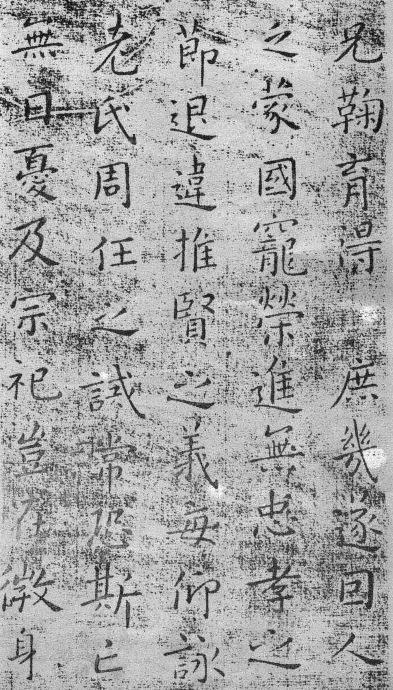 兄鞠育得 庶幾遂因人
乏蒙國寵榮進無忠孝之
節退違推賢之義每仰詠
老氏周任之誡常恐斯亡
無日憂及宗祀豈在微身